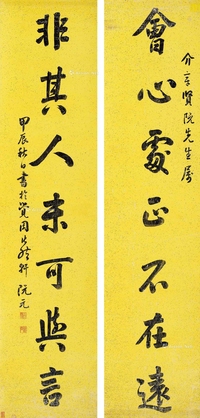 會心處正不在遠
介亭賢阮先生屬
非其人未可與言
甲辰秋日書於
阮元